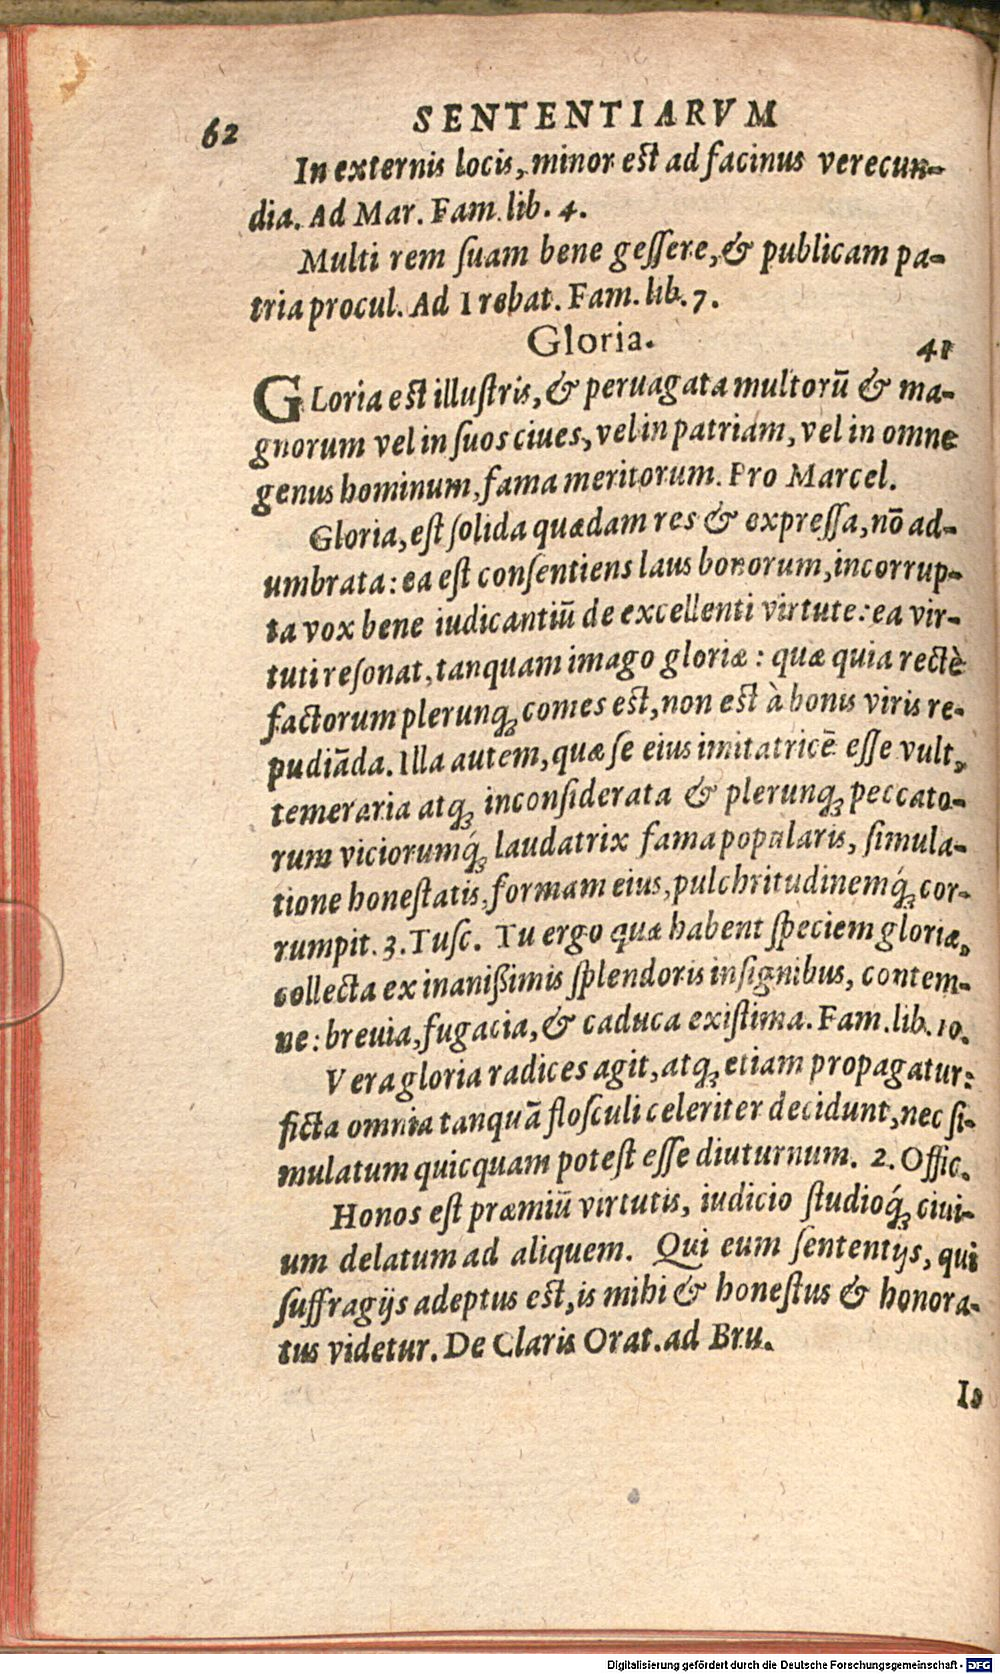 62 SENTENTIARVM
In externis locis, minor est ad facinus verecun-
dia. Ad Mar. Fam. lib. 4.
Multi rem ſuam bene geſſere, & publicam pa-
tria procul. Ad Trebat. Fam. lib. 7.
Gloria. 41
GLoria est illuſtris, & peruagata multorū & ma-
gnorum vel in ſuos ciues, vel in patriam, vel in omne
genus hominum, fama meritorum. Pro Marcel.
Gloria, eſt ſolida quædam res & expreſſa, nō ad-
umbrata: ea eſt conſentiens laus bonorum, incorrup-
ta vox bene iudicantiū de excellenti virtute: ea vir-
tuti reſonat, tanquam imago gloriæ: quæ quia rectè
factorum plerunq; comes est, non est à bonis viris re-
pudiāda. Illa autem, quæ ſe eius imitatricē eſſe vult,
temeraria atq; inconſiderata & plerunq; peccato-
rum viciorumq́; laudatrix fama popularis, ſimula-
tione honeſtatis, formam eius, pulchritudinemq́; cor-
rumpit. 3. Tuſc. Tu ergo quæ habent ſpeciem gloriæ,
collecta ex inanißimis ſplendoris inſignibus, contem-
ne: breuia, fugacia, & caduca exiſtima. Fam. lib. 10.
Vera gloria radices agit, atq; etiam propagatur:
ficta omnia tanquā floſculi celeriter decidunt, nec ſi-
mulatum quicquam poteſt eſſe diuturnum. 2. Offic.
Honos eſt præmiū virtutis, iudicio ſtudioq́; ciui-
um delatum ad aliquem. Qui eum ſententijs, qui
ſuffragijs adeptus eſt, is mihi & honeſtus & honora-
tus videtur. De Claris Orat. ad Bru.
Is
Digitalisierung gefördert durch die Deutsche Forschungsgemeinschaft - DFG